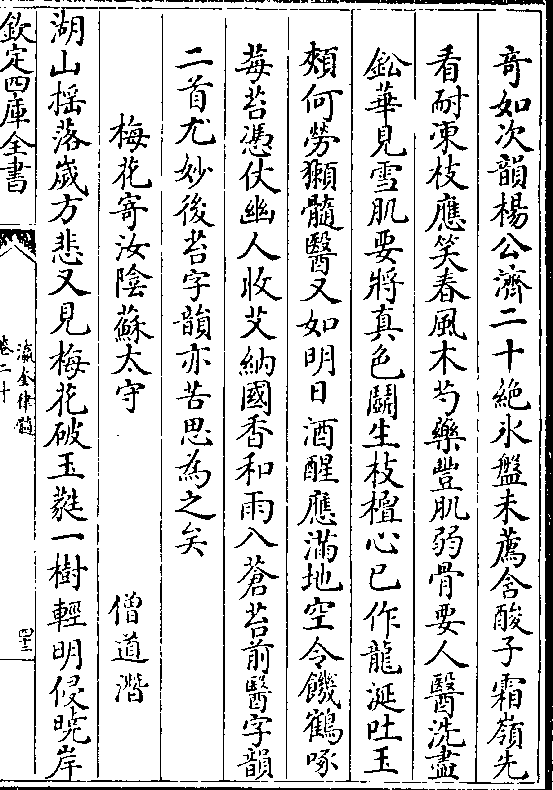 奇如次韻楊公濟二十絶氷盤未薦含酸子霜嶺先
看耐凍枝應笑春風木芍藥豐肌弱骨要人醫洗盡
鈆華見雪肌要將真色鬭生枝檀心已作龍涎吐玉
頰何勞獺髓醫又如明日酒醒應滿地空令饑鶴啄
莓苔憑仗幽人收艾納國香和雨入蒼苔前醫字韻
二首尤妙後苔字韻亦苦思為之矣
梅花寄汝隂蘇太守 僧道潛
湖山揺落嵗方悲又見梅花破玉蕤一樹輕明侵曉岸
欽定四庫全書
瀛奎律髓
卷二十
四十三